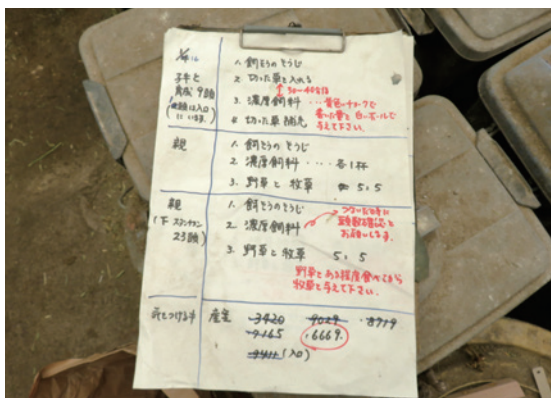 子牛と
育成9頭
1. 飼そうのそうじ
2. 切った草を入れる
30〜40分後
3. 濃厚飼料 ・・・ 黄色いチョークで
書いた量を白いボールで
与えて下さい。
4. 切った草補充
親
1. 飼そうのそうじ
2. 濃厚飼料 ・・・・ 各1杯
3. 野草と牧草 5:5
親
(下スタンチョン
23頭)
1. 飼そうのそうじ
2. 濃厚飼料
頭数確認を
お願いします。
3. 野草と牧草 5:5
野草をある程度食べてから
牧草を与えて下さい。
産室 3420 9029 8719
9165 6669
9411 (入口)